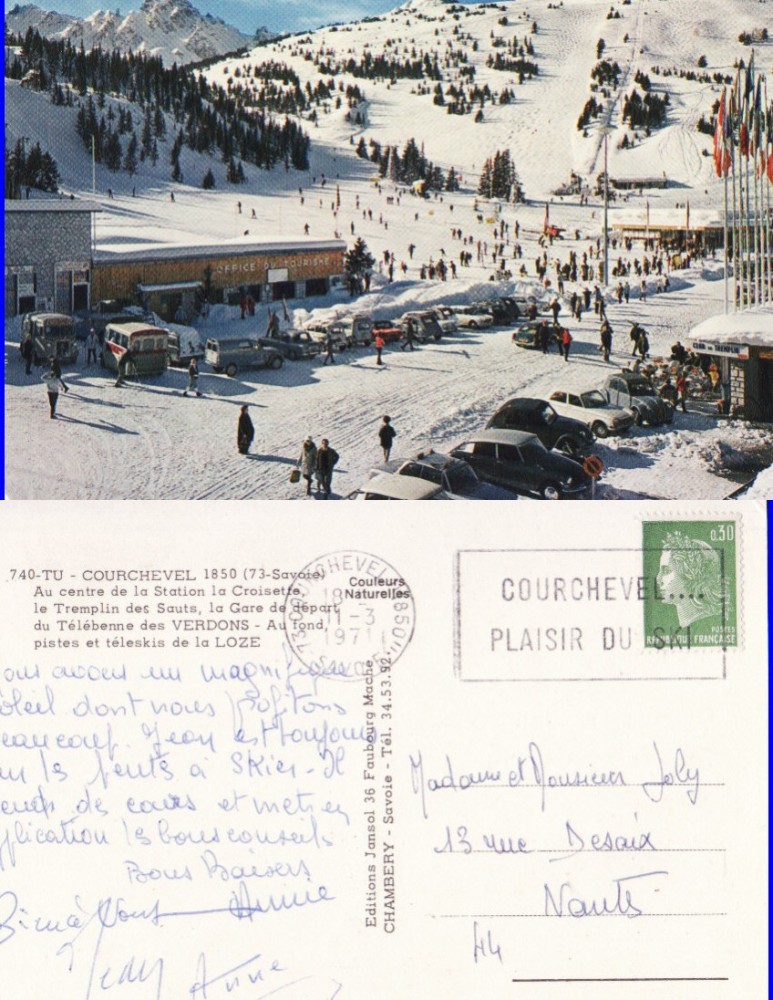 OFFICE DU TOURISME
740-TU - COURCHEVEL 1850 (73-Savoie)
Au centre de la Station la Croisette,
le Tremplin des Sauts, la Gare de départ
du Télébenne des VERDONS - Au fond,
pistes et téleskis de la LOZE
Couleurs
Naturelles
73 COURCHEVEL 1850
18 H
11-3
1971
Savoie
COURCHEVEL....
PLAISIR DU SKI
0,30
POSTES
REPUBLIQUE FRANÇAISE
ous avons un magnifique
oleil dont nous profitons
eaucoup. Jean est toujours
les pentes à skier - Il
de cours et met en
pplication les bons conseils
Bons Baisers
Anne
Jean Anne
Editions Jansol 36 Faubourg Mache
CHAMBERY - Savoie - Tél. 34.53.92.
Madame et Monsieur Joly
13 rue Desaix
Nantes
44